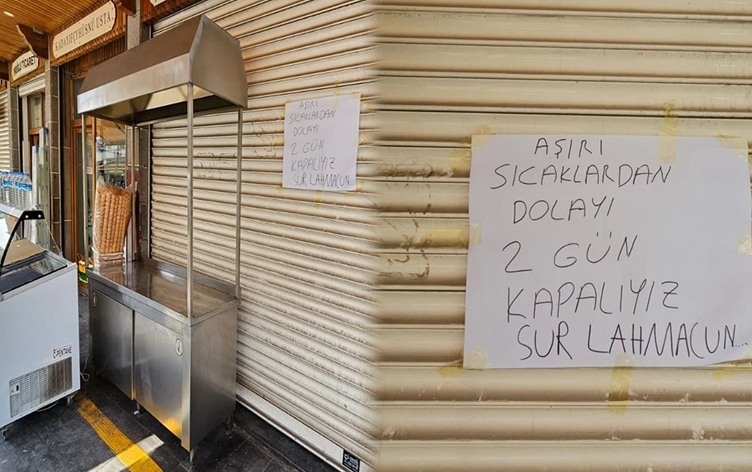 KADAYIFÇI HÜSNÜ USTA
TİCARET
AŞIRI
SICAKLARDAN
DOLAYI
2 GÜN
KAPALIYIZ
SUR LAHMACUN...
AŞIRI
SICAKLARDAN
DOLAYI
2 GÜN
KAPALIYIZ
SUR LAHMACUN...